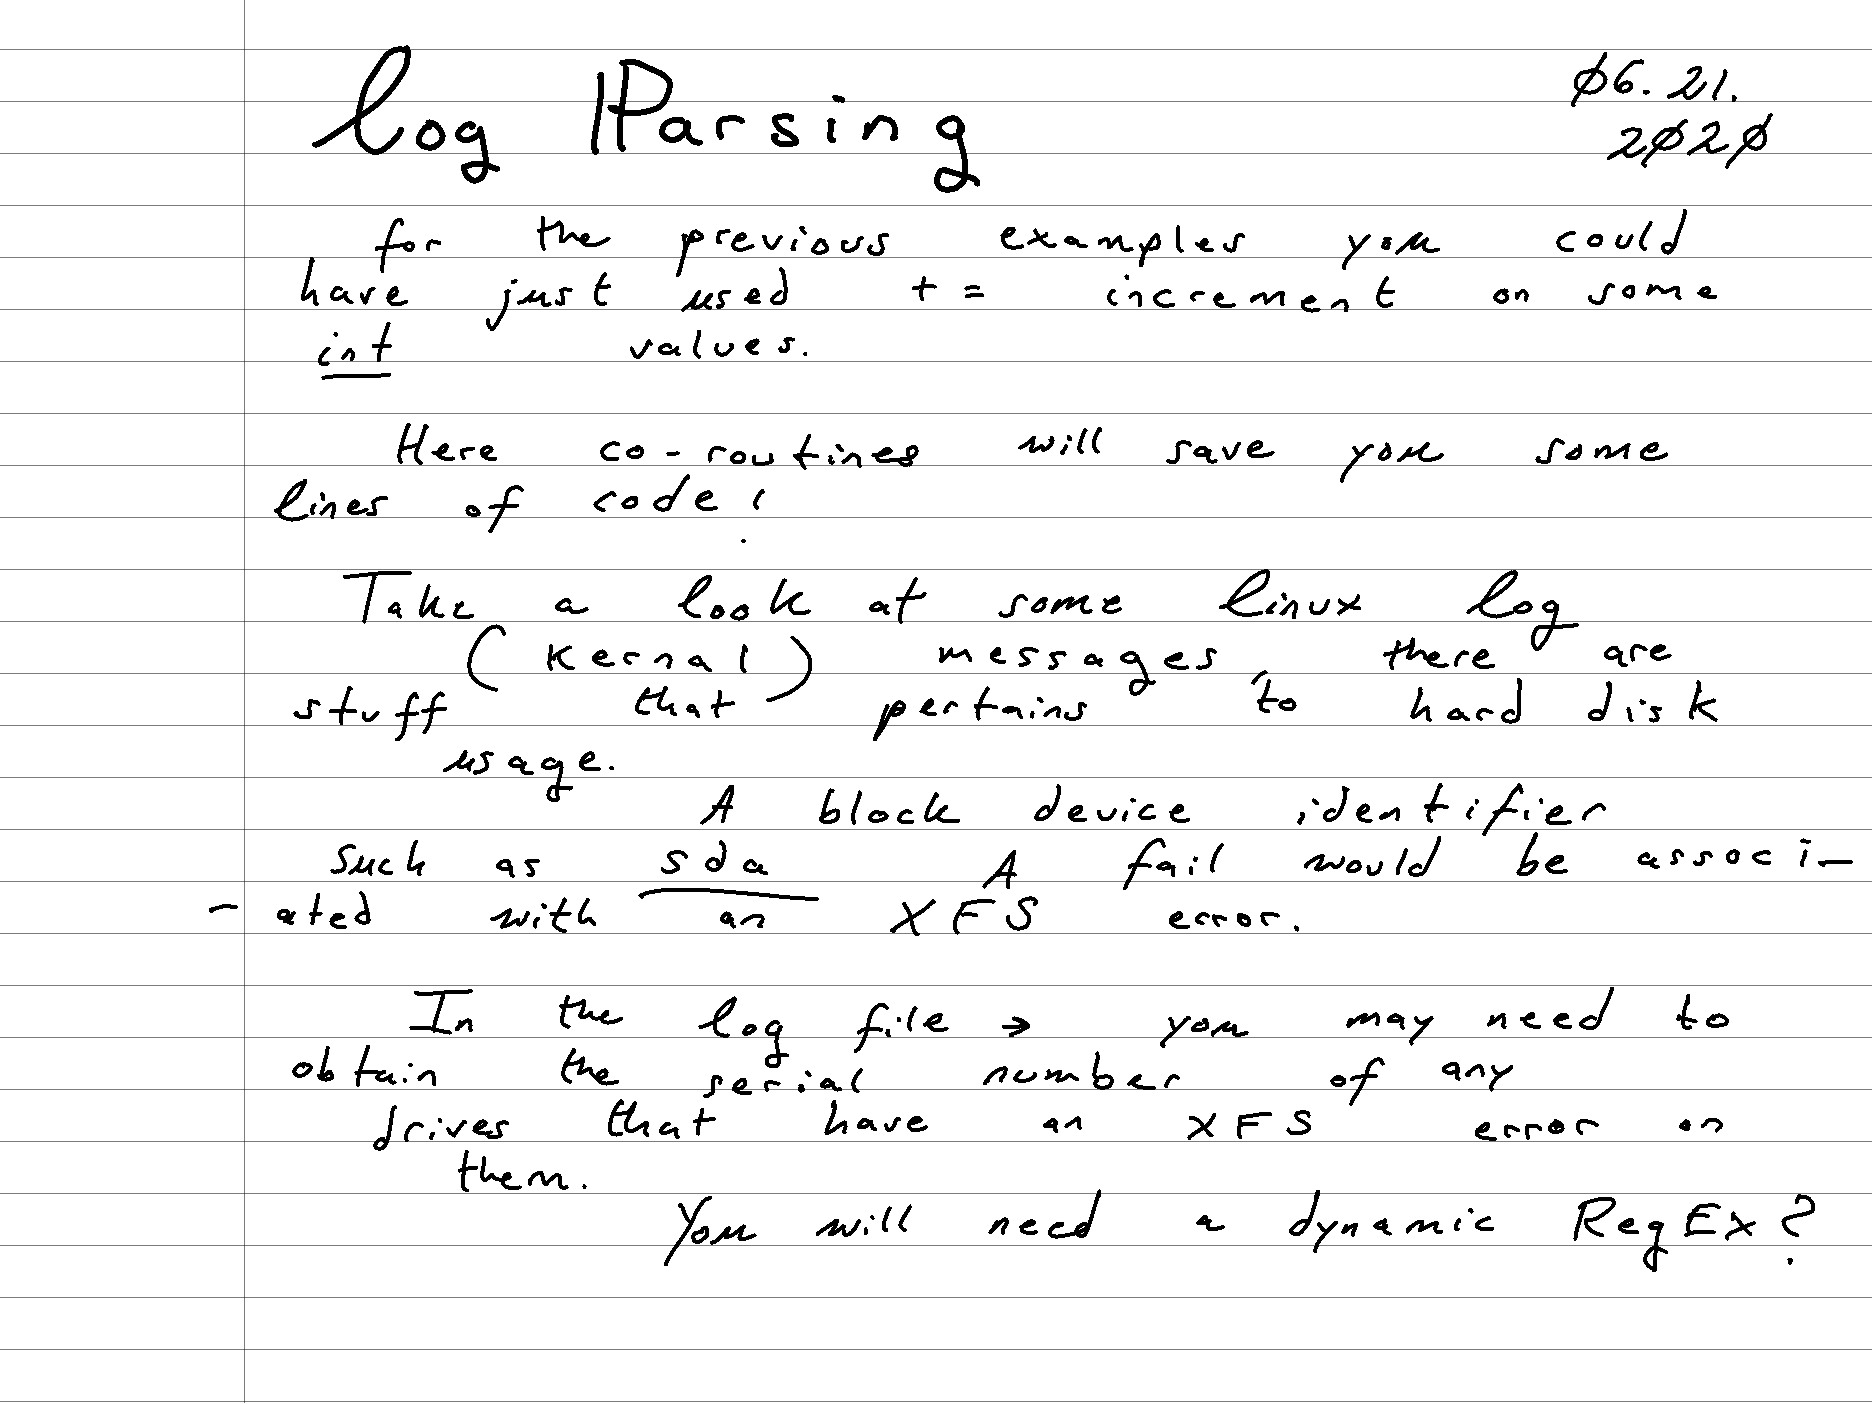 log Parsing
06.21.
2020
for the previous examples you could
have just used += increment on some
int values.
Here co-routines will save you some
lines of code!
Take a look at some linux log
(kernal) messages, there are
stuff that pertains to hard disk
usage.
A block device identifier
such as sda A fail would be associ-
-ated with an XFS error.
In the log file → you may need to
obtain the serial number of any
drives that have an XFS error on
them.
You will need a dynamic RegEx?